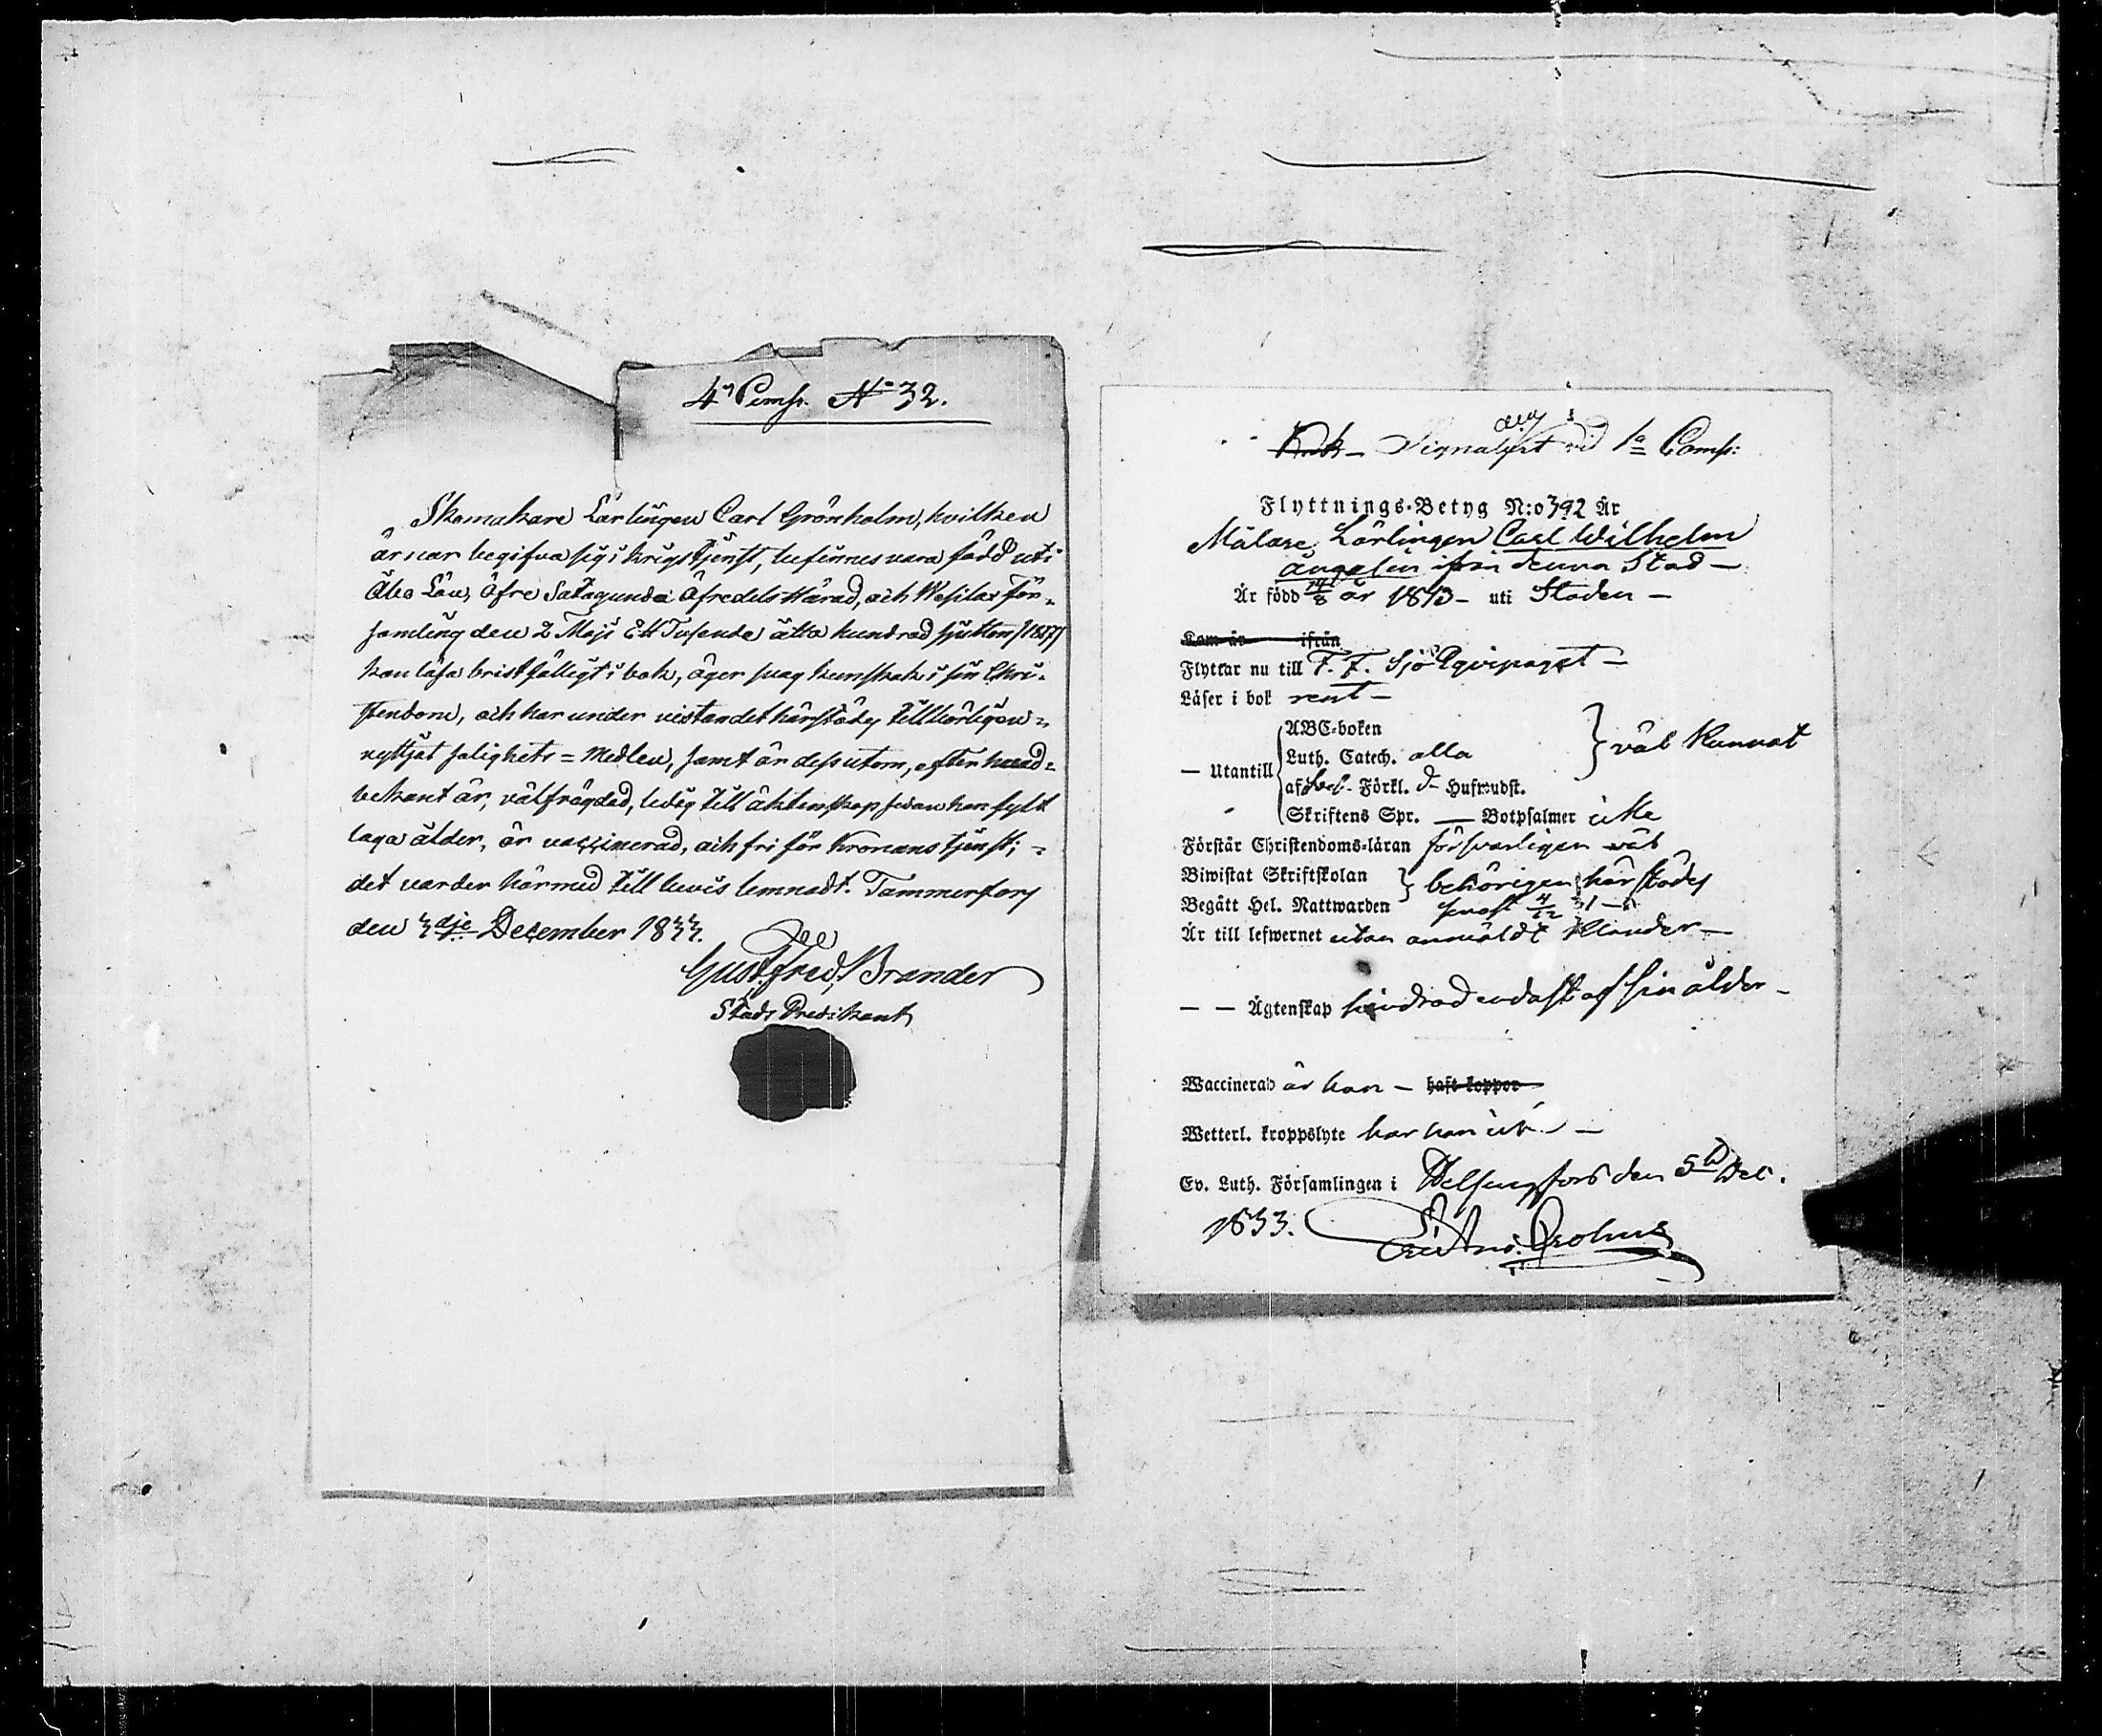 4de Comp. No 32.
Skomakare Lärlingen Carl Grönholm, hvilken
ärnar begifva sig i krigstjenst, befinnes vara född uti
Åbo Län, Öfre Satagunda Öfredels Härad, och Wesilax För-
samling den 2 Maji Ett Tusende åtta hundrad sjutton /1817/
kan läsa bristfälligt i bok, äger svag kunskab i sin Chri-
stendom, och har under vistandet härstädes tillbörligen
nyttjat salighets=Medlen, samt är dessutom, efter hvad
bekant är, välfrägdad, ledig till äktenskap sedan han fylt
laga ålder, är vaccinerad, och fri för Kronans tjenst;
det varder härmed till bevis lemnadt. Tammerfors
den 3dje December 1833.
Gust. Fred. Brander
Stads Predikant
Signalist vid 1a Comp:
Flyttnings-Betyg N:o 392 År
Målare Lärlingen Carl Wilhelm
Ängelin ifrån denna Stad —
Är född 14/8 år 1813 — uti Staden —
Kom år ifrån
Flyttar nu till F. F. Sjö Eqvipaget —
Läser i bok rent —
ABC-boken
— Utantill Luth. Catech. alla } väl kunnat
af Förkl. Hufwudst.
Skriftens Spr. — Botpsalmer icke
Förstår Christendoms-läran försvarligen väl
Biwistat Skriftskolan } behörigen härstädes
Begått Hel. Nattwarden senast 4/12 31 —
Är till lefwernet utan anmäldt klander —
— — Ägtenskap hindrad endast af sin ålder —
Waccinerad är han — haft koppor
Wetterl. kroppslyte har han icke —
Ev. Luth. Församlingen i Helsingfors den 5 Dec.
1833.
Crohns